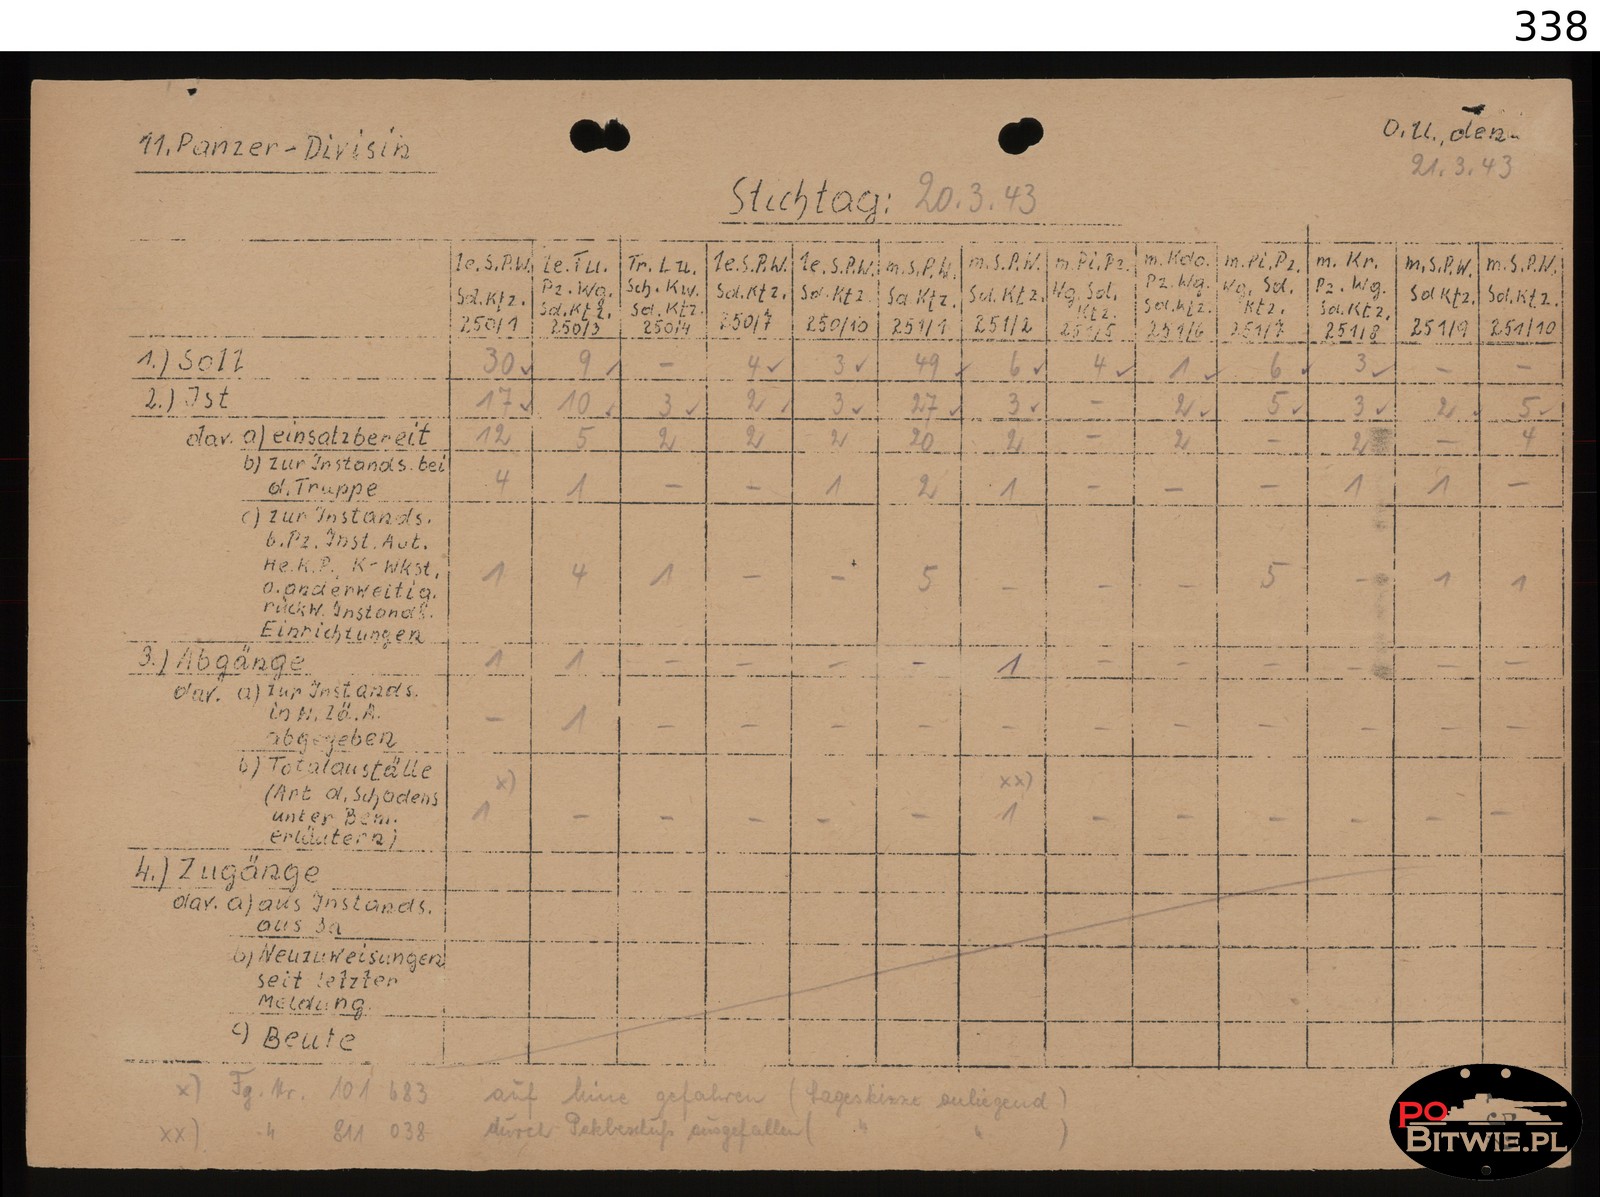 338
11. Panzer-Divisin
O.U., den
21.3.43
Stichtag: 20.3.43
le. S.P.W. Sd.Ktz. 250/1 | le. Fu. Pz. Wg. Sd.Ktz. 250/3 | Sch. Kw. Sd. Ktz. 250/4 | le. S.P.W. Sd.Ktz. 250/7 | le. S.P.W. Sd.Ktz. 250/10 | m.S.P.W. Sd Ktz. 251/1 | m.S.P.W. Sd.Ktz. 251/2 | m.Pi.Pz. Wg. Sd. Ktz. 251/5 | m. Kdo. Pz. Wg. Sd.Ktz. 251/6 | m.Pi.Pz. Wg. Sd. Ktz. 251/7 | m. Kr. Pz. Wg. Sd.Ktz. 251/8 | m.S.P.W. Sd Ktz. 251/9 | m.S.P.W. Sd.Ktz. 251/10
1.) Soll 30 ✓ 9 ✓ – 4 ✓ 3 ✓ 49 ✓ 6 ✓ 4 ✓ 1 ✓ 6 ✓ 3 ✓ – –
2.) Ist 17 ✓ 10 ✓ 3 ✓ 2 ✓ 3 ✓ 27 ✓ 3 ✓ – 2 ✓ 5 ✓ 3 ✓ 2 ✓ 5 ✓
dav. a) einsatzbereit 12 5 2 2 2 20 2 – 2 – 2 – 4
b) zur Instands. bei
d. Truppe 4 1 – – 1 2 1 – – – 1 1 –
c) zur Instands.
b. Pz. Inst. Abt.
He.K.P., K-Wkst,
o. anderweitig. 1 4 1 – – 5 – – – 5 – 1 1
rückw. Instands.
Einrichtungen
3.) Abgänge 1 1 – – – – 1 – – – – – –
dav. a) zur Instands.
in H. Zä. A. – 1 – – – – – – – – – – –
abgegeben
b) Totalausfälle
(Art d. Schadens x) xx)
unter Bem. 1 – – – – – 1 – – – – – –
erläutern)
4.) Zugänge
dav. a) aus Instands.
aus Za
b) Neuzuweisungen
seit letzter
Meldung.
c) Beute
x) Fg. Nr. 101 683 auf Mine gefahren (Lageskizze anliegend)
xx) " 811 038 durch Pakbeschuß ausgefallen ( " " )
PO
BITWIE.PL